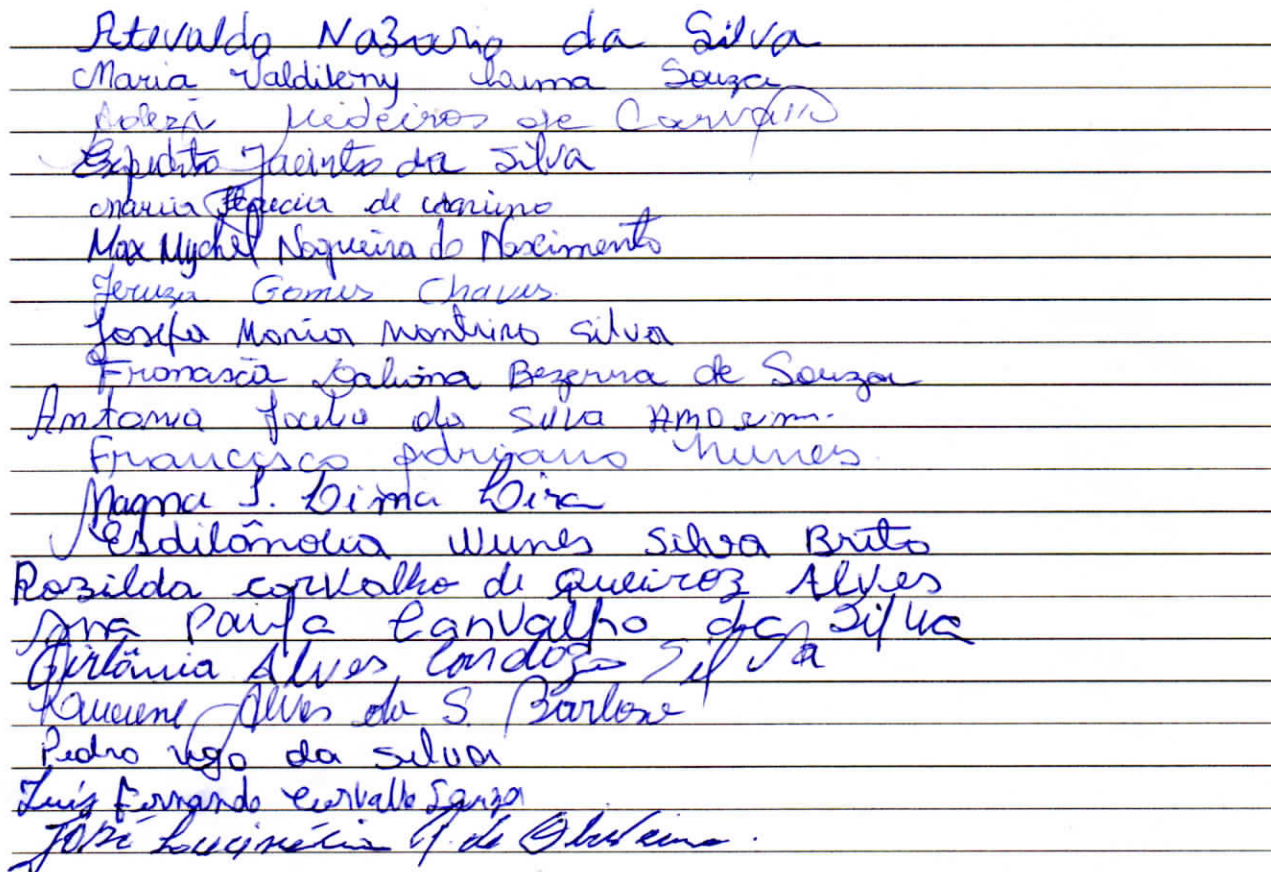 Atevaldo Nazario da Silva
Maria Valdileny Lima Souza
Medeiros de Carvalho
Expedito Jacinto da Silva
Maria de
Max Mychel Nogueira do Nascimento
Jeruza Gomes Chaves.
Josefa Maria Monteiro Silva
Bezerra de Souza
Antonia da Silva Amorim.
Francisco Adriano Nunes.
Magna S. Lima Lira
Nunes Silva Brito
Rozilda carvalho de Queiroz Alves
Ana Paula Carvalho da Silva
Girlânia Alves Cardozo Silva
Alves da S. Barbosa
Pedro ugo da silva
Luís Fernando Carvalho Souza
José de Oliveira.